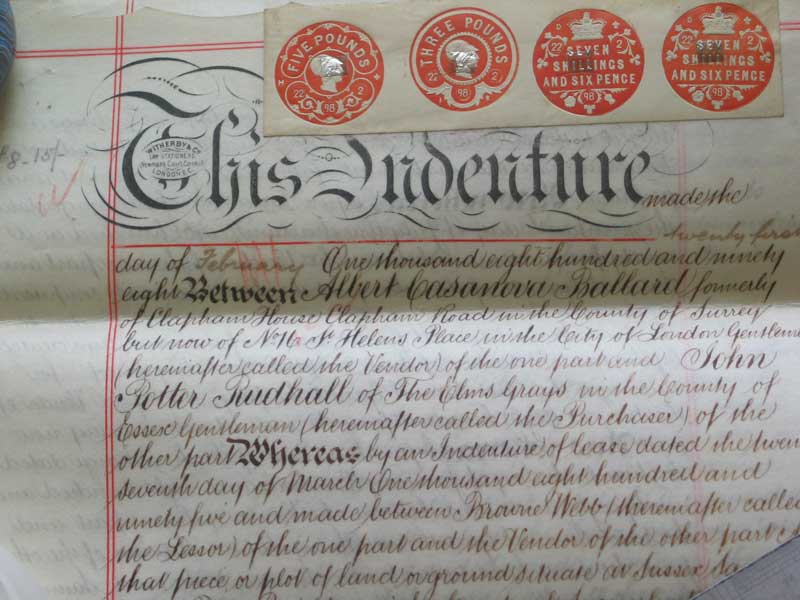 FIVE POUNDS
22 2
98
THREE POUNDS
22 2
98
22 2
SEVEN
SHILLINGS
AND SIX PENCE
98
22 2
SEVEN
SHILLINGS
AND SIX PENCE
98
WITHERBY & CO
LAW STATIONERS
LONDON E.C.
This Indenture made the
twenty first
day of February One thousand eight hundred and ninety
eight Between Albert Casanova Ballard formerly
of Clapham House Clapham Road in the County of Surrey
but now of No 16 St Helens Place in the City of London Gentleme
(hereinafter called the Vendor) of the one part and John
Potter Rudhall of The Elms Grays in the County of
Essex Gentleman (hereinafter called the Purchaser) of the
other part Whereas by an Indenture of lease dated the twen
seventh day of March One thousand eight hundred and
ninety five and made between Browne Webb (thereinafter called
the Lessor) of the one part and the Vendor of the other part
that piece or plot of land or ground situate at Sussex